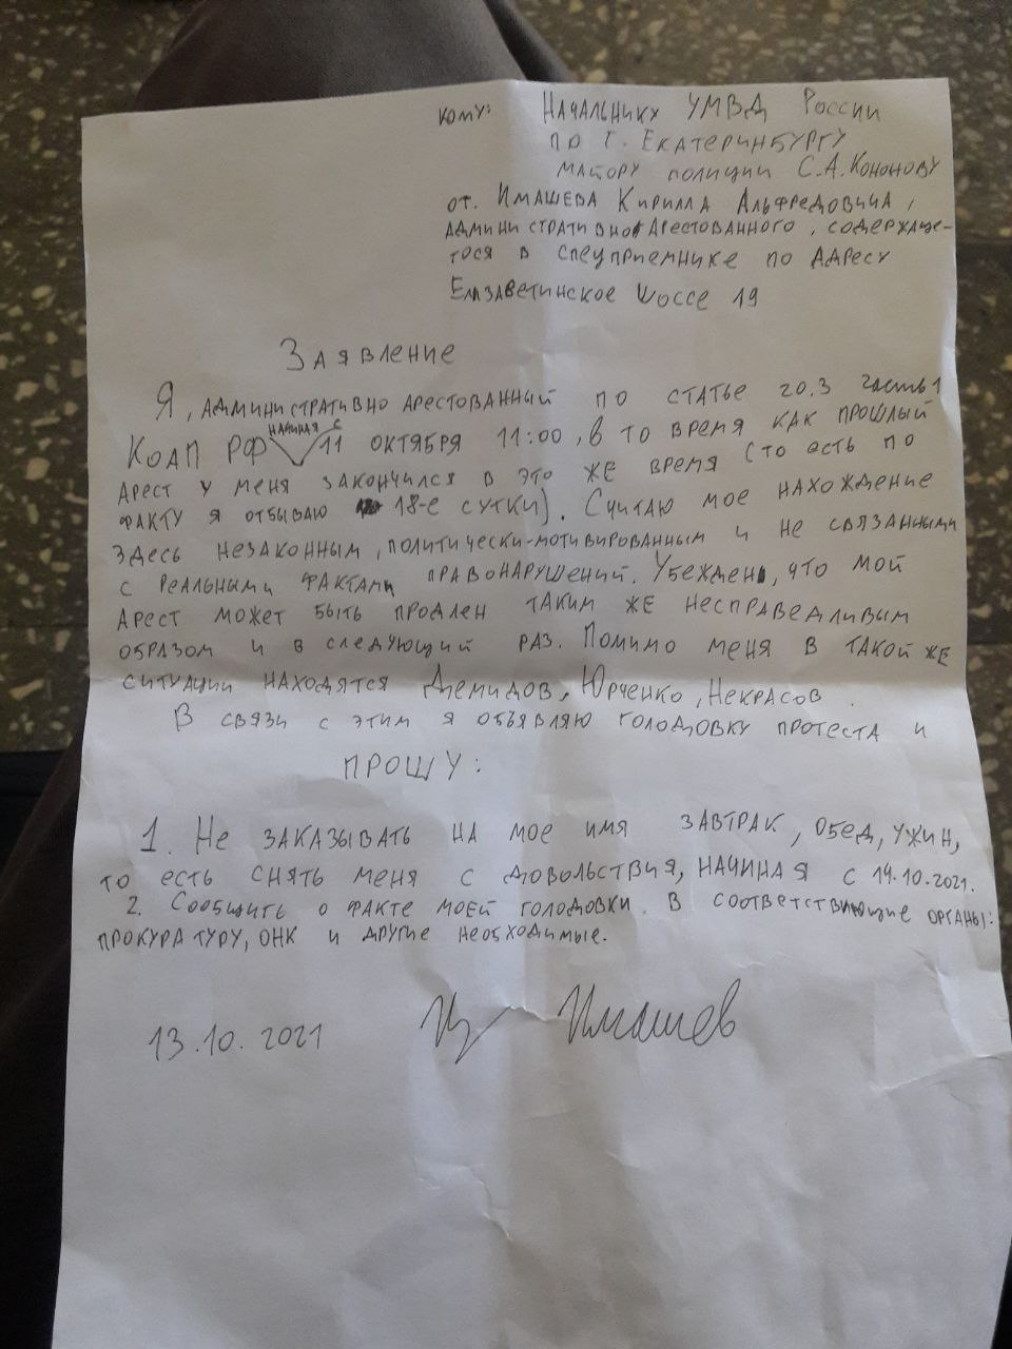 кому: Начальнику УМВД России
по г. Екатеринбургу
майору полиции С.А. Кононову
от. Имашева Кирилла Альфредовича,
административно арестованного, содержаще-
гося в спецприемнике по адресу
Елизаветинское шоссе 19
Заявление
Я, административно арестованный по статье 20.3 часть 1
КоАП РФ начиная с 11 октября 11:00, в то время как прошлый
арест у меня закончился в это же время (то есть по
факту я отбываю 18-е сутки). Считаю мое нахождение
здесь незаконным, политически-мотивированным и не связанными
с реальными фактами правонарушений. Убежден, что мой
арест может быть продлен таким же несправедливым
образом и в следующий раз. Помимо меня в такой же
ситуации находятся Демидов, Юрченко, Некрасов.
В связи с этим я объявляю голодовку протеста и
ПРОШУ:
1. Не заказывать на мое имя завтрак, обед, ужин,
то есть снять меня с довольствия, начиная с 14.10.2021.
2. Сообщить о факте моей голодовки в соответствующие органы:
прокуратуру, ОНК и другие необходимые.
13.10.2021 Имашев